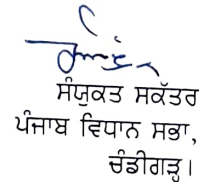 ਸੰਯੁਕਤ ਸਕੱਤਰ
ਪੰਜਾਬ ਵਿਧਾਨ ਸਭਾ,
ਚੰਡੀਗੜ੍ਹ।